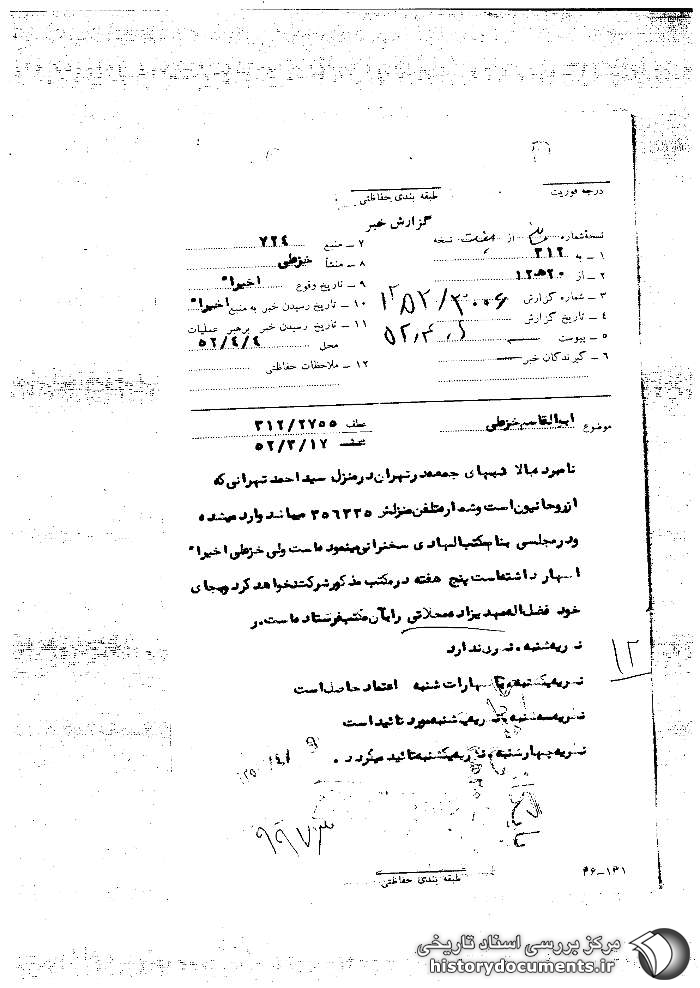 درجه فوریت
طبقه بندی حفاظتی
گزارش خبر
نسخه شماره از هفت نسخه
۱ – به ۳۱۲
۲ – از ۲۰ه۱۲
۳ – شماره گزارش ۳۰۰۶/۱۲ه۲
۴ – تاریخ گزارش ۵۲٫۴٫۶
۵ – پیوست
۶ – گیرندگان خبر
۷ – منبع ۷۲۴
۸ – منشأ خزعلی
۹ – تاریخ وقوع اخیرا"
۱۰ – تاریخ رسیدن خبر به منبع اخیرا"
۱۱ – تاریخ رسیدن خبر برهبر عملیات
محل ۵۲/۴/۴
۱۲ – ملاحظات حفاظتی
موضوع ابوالقاسم خزعلی
عطف ۳۱۲/۲۷۵۵
۵۲/۳/۱۷
نامبرده بالا شبهای جمعه در تهران در منزل سید احمد تهرانی که
از روحانیون است و شماره تلفن منزلش ۳۵۶۳۳۵ میباشد وارد میشده
و در مجلسی بنام مکتب الهادی سخنرانی مینموده است ولی خزعلی اخیرا"
اظهار داشته است پنج هفته در مکتب مذکور شرکت نخواهد کرد و بجای
خود فضل اله مهدیزاده محلاتی را بآن مکتب فرستاده است. ر
نظریه شنبه. نظری ندارد
نظریه یکشنبه. به اظهارات شنبه اعتماد حاصل است
نظریه سه شنبه. نظریه یکشنبه مورد تائید است
نظریه چهارشنبه. نظریه یکشنبه تائید میگردد.
۱۲
بایگانی
۹۹۷
طبقه بندی حفاظتی
۳۶-۱۳۱
مرکز بررسی اسناد تاریخی
historydocuments.ir